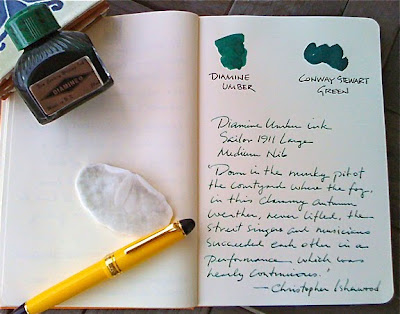 DIAMINE
DIAMINE
UMBER
CONWAY STEWART
GREEN
Diamine Umber ink
Sailor 1911 Large
Medium Nib
"Down in the murky pit of
the courtyard where the fog,
in this clammy autumn
weather, never lifted, the
street singers and musicians
succeeded each other in a
performance which was
nearly continuous."
— Christopher Isherwood